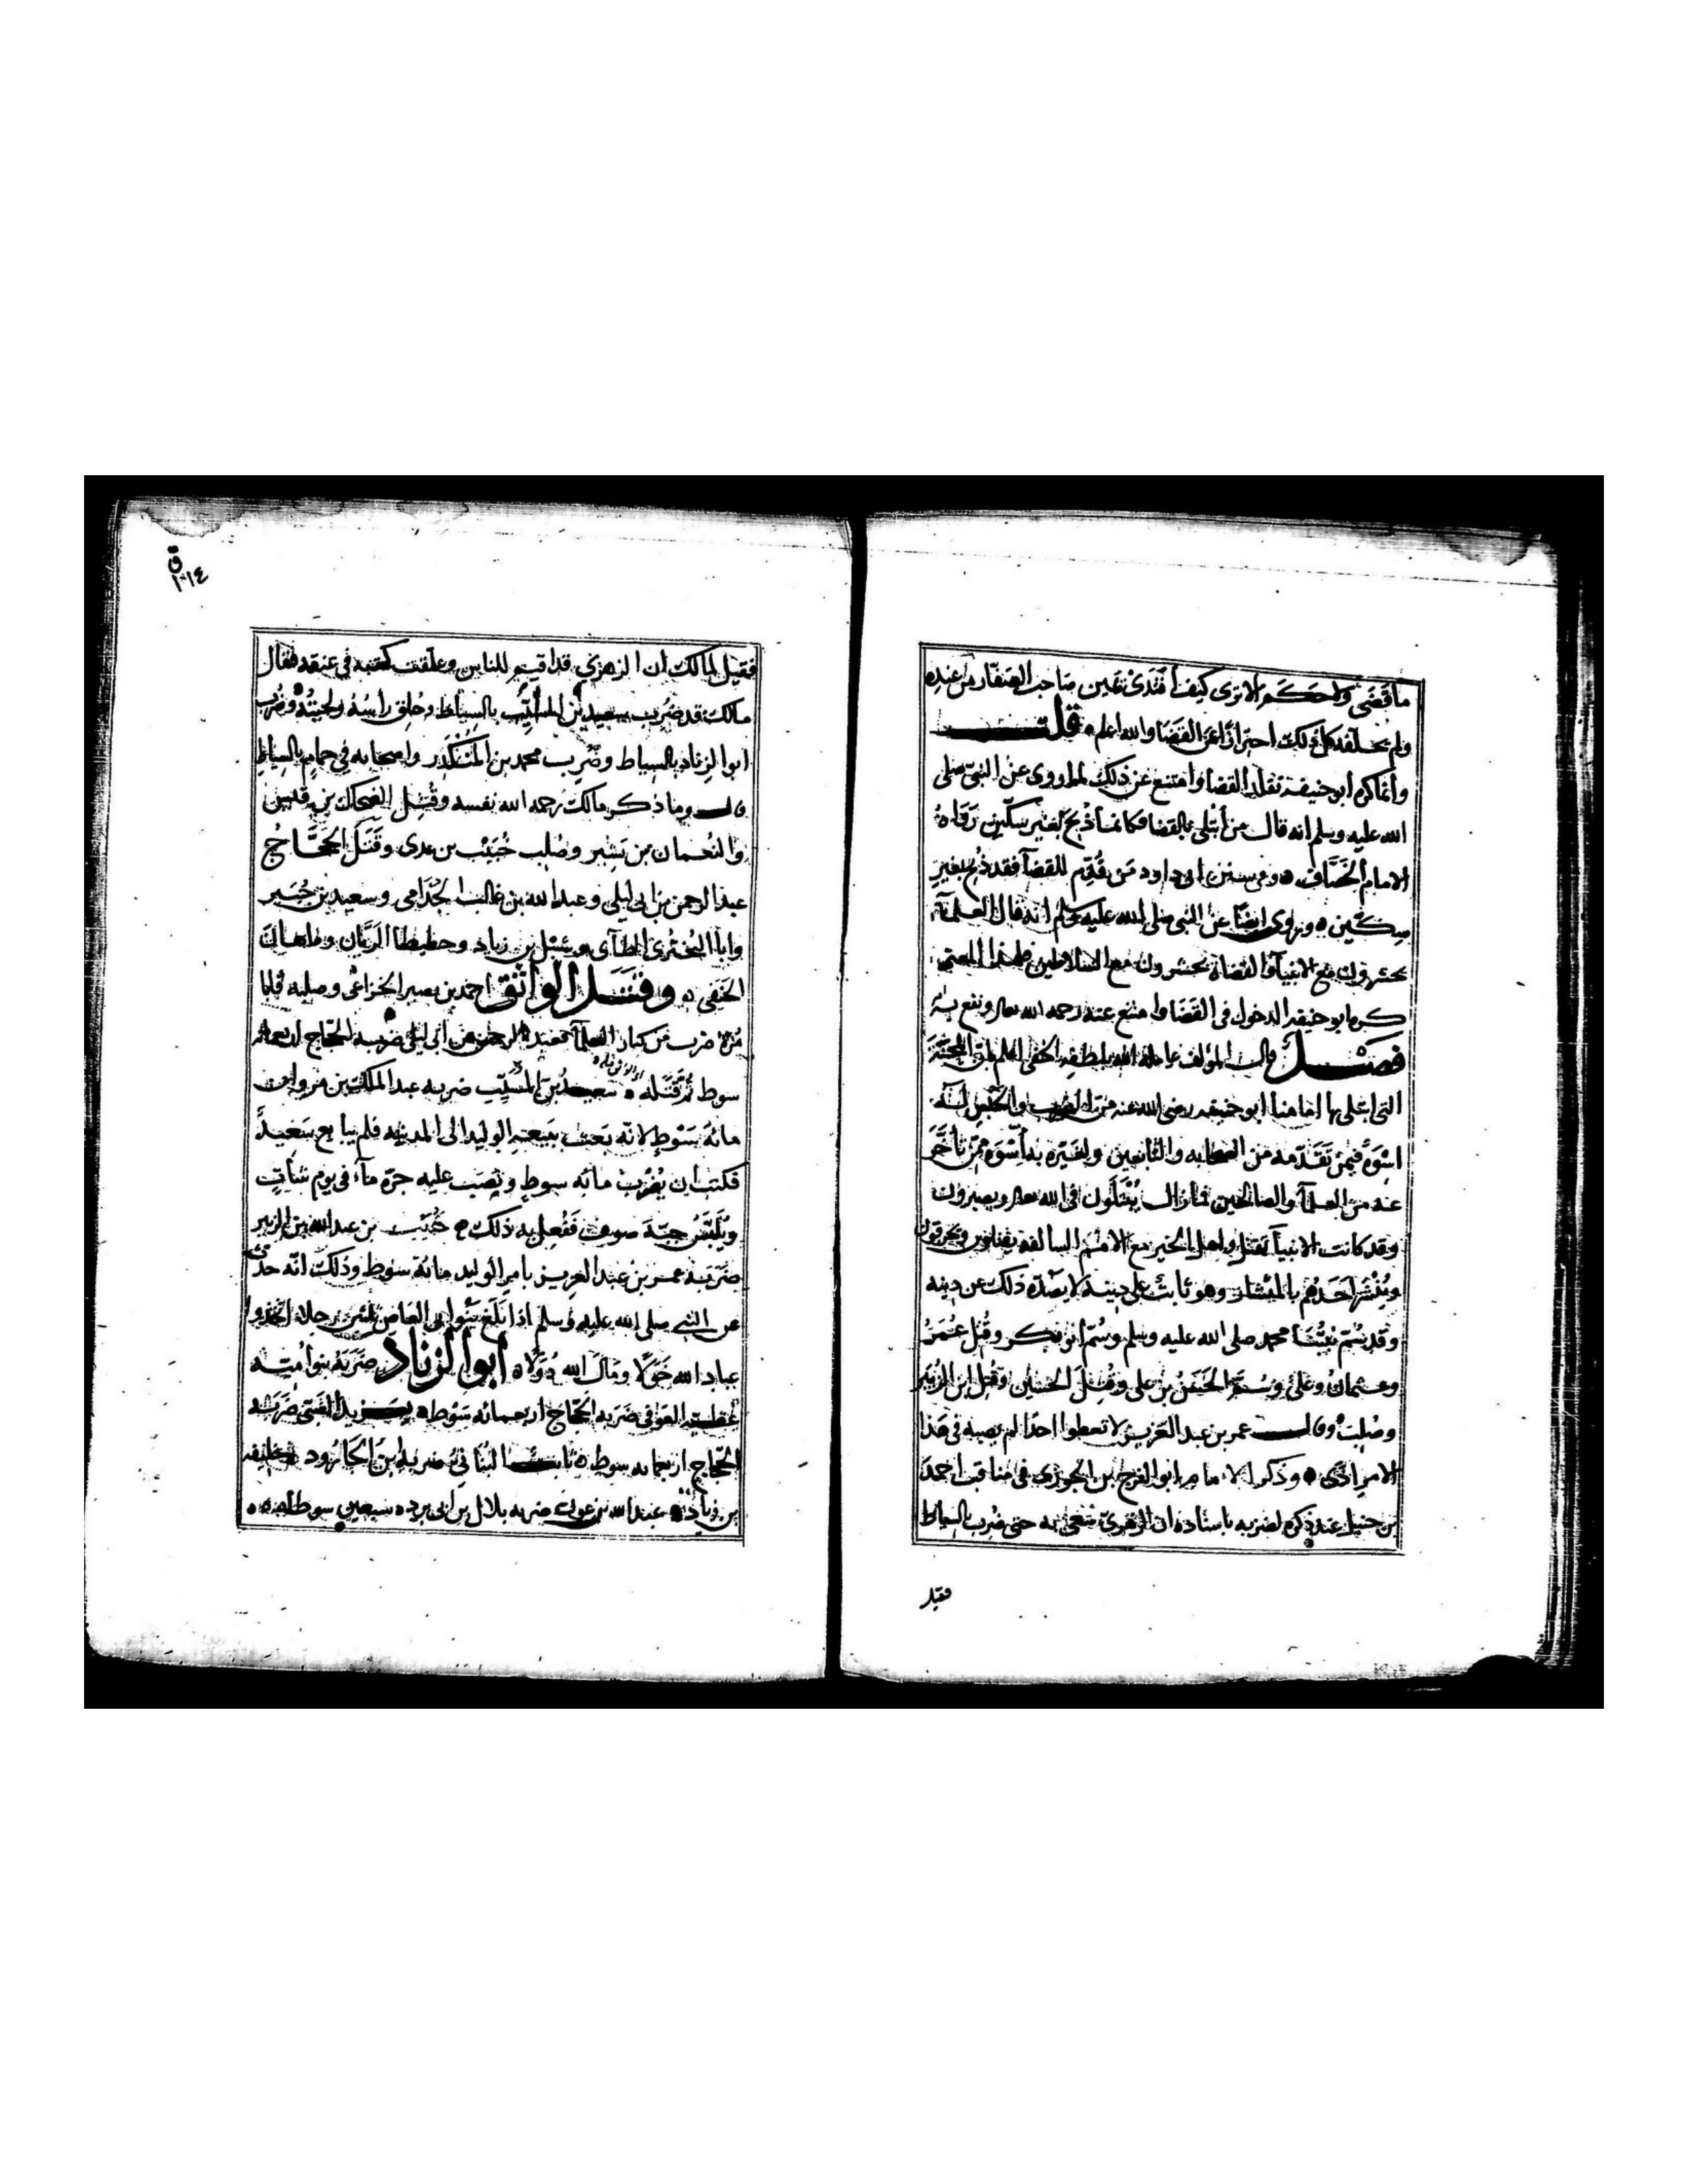 ما قضى ولا حكم الا ترى كيف افتدى يمين صاحب الصفار من عنده
ولم يحلفه كل ذلك احترازا عن القضا والله اعلم ه قلت
وانما كره ابو حنيفة تقلد القضا وامتنع عن ذلك لما روى عن النبى صلى
الله عليه وسلم انه قال من ابتلى بالقضا فكانما ذبح بغير سكين رواه
الامام الخصاف ه وفى سنن ابى داود من قدم للقضآ فقد ذبح بغير
سكين ه وروى ايضا عن النبى صلى الله عليه وسلم انه قال العلمآء
يحشرون مع الانبيآ والقضاة يحشرون مع السلاطين فلهذا المعنى
كره ابو حنيفه الدخول فى القضا وامتنع عنه رحمه الله تعالى ونفع به
فصل قال المؤلف عامله الله بلطفه الخفى اعلم بان المحنة
التى ابتلى بها امامنا ابو حنيفه رضى الله عنه من الضرب والحبس له
اسوة فيمن تقدمه من الصحابه والتابعين ولغيره به اسوة ممن تأخر
عنه من العلمآ والصالحين فما زال يبتلون فى الله تعالى ويصبرون
وقد كانت الانبيآ تقتل واهل الخير مع الامم السالفة يقتلون ويحرقون
وينشر احدهم بالمنشار وهو ثابت على دينه لا يصده ذلك عن دينه
وقد سم نبينا محمد صلى الله عليه وسلم وسم ابو بكر وقتل عمر
وعثمان وعلى وسم الحسن بن على وقتل الحسين وقتل ابن الزبير
وصلب ه وقال عمر بن عبد العزيز لا تغبطوا احدا لم يصبه فى هذا
الامر اذى ه وذكر الامام ابو الفرج بن الجوزى فى مناقب احمد
بن حنبل عند ذكره لضربه باسناده ان الزهرى سعى به حتى ضرب بالسياط
فقيل
ق
١٠١٤
فقيل لمالك ان الزهرى قد اقيم للناس وعلقت كتبه فى عنقه فقال
مالك قد ضرب سعيد بن المسيب بالسياط وحلق راسه ولحيته وضرب
ابو الزناد بالسياط وضرب محمد بن المنكدر واصحابه فى حمام بالسياط
قال وما ذكر مالك رحمه الله نفسه وقتل الضحاك بن قيس
والنعمان بن بشير وصلب خبيب بن عدى وقتل الحجاج
عبد الرحمن بن ابى ليلى وعبد الله بن غالب الحدامى وسعيد بن جبير
وابا البخترى الطآى وسبل بن زياد وحطيطا الزيان وماهان
الحنفى ه وقتل الواثق احمد بن نصير الخزاعى وصلبه فاما
من ضرب من كبار العلمآ فعبد الرحمن بن ابى ليلى ضربه الحجاج اربعمائه
سوط ثم قتله ه سعيد بن المسيب ضربه عبد الملك بن مروان
مائة سوط لانه بعث ببيعة الوليد الى المدينه فلم يبايع سعيد
فكتب ان يضرب مائه سوط ويصب عليه جرة مآء فى يوم شات
ويلبس جبة صوف ففعل به ذلك ه خبيب بن عبد الله بن الزبير
ضربه عمر بن عبد العزيز بامر الوليد مائة سوط وذلك انه حدث
عن النبى صلى الله عليه وسلم اذا بلغ بنو ابى العاص ثلثين رجلا اتخذوا
عباد الله خولا ومال الله دولا ه ابو الزناد ضربه بنو اميه
عطية العوفى ضربه الحجاج اربعمائه سوط ه يزيد الضبى ضربه
الحجاج اربعمائه سوط ه ثابت البنانى ضربه ابن الجارود خليفة
بن زياد ه عبد الله بن عون ضربه بلال بن ابى برده سبعين سوطا